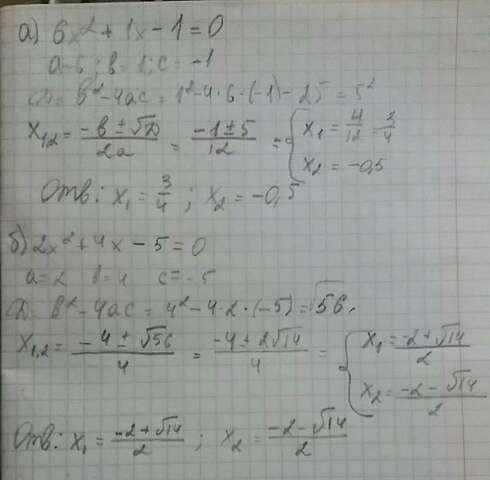 а) 6x² + 1x - 1 = 0
a=6; в = 1; c = -1
D = в² - 4ac = 1² - 4 · 6 · (-1) - 25 = 5²
x₁,₂ = (-в ± √D)/2a = (-1 ± 5)/12 = { x₁ = 4/12 = 3/4
x₂ = -0,5
Отв: x₁ = 3/4 ; x₂ = -0,5
б) 2x² + 4x - 5 = 0
a = 2 в = 4 c = -5
D = в² - 4ac = 4² - 4 · 2 · (-5) = √56.
x₁,₂ = (-4 ± √56)/4 = (-4 ± 2√14)/4 = { x₁ = (-2 + √14)/2
x₂ = (-2 - √14)/2
Отв: x₁ = (-2 + √14)/2 ; x₂ = (-2 - √14)/2